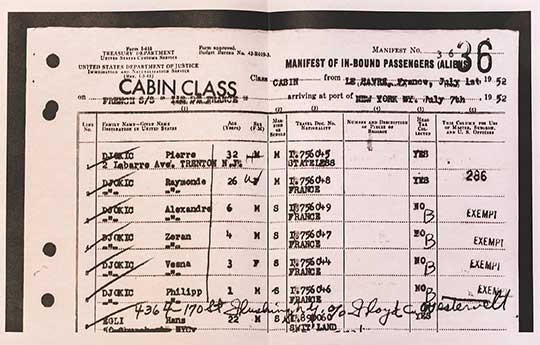 Form I-418
TREASURY DEPARTMENT
UNITED STATES CUSTOMS SERVICE
Form approved.
Budget Bureau No. 43-R409.3.
MANIFEST NO. 3 6
36
UNITED STATES DEPARTMENT OF JUSTICE
IMMIGRATION AND NATURALIZATION SERVICE
CABIN CLASS
MANIFEST OF IN-BOUND PASSENGERS (ALIENS)
Class CABIN from LE HAVRE, France, July 1st 19 52
on FRENCH S/S arriving at port of NEW YORK NY. July 7th 19 52
(1) (2) (3)
LINE NO.
FAMILY NAME—GIVEN NAME
DESTINATION IN UNITED STATES
AGE (YEARS)
SEX (F-M)
MARRIED OR SINGLE
TRAVEL DOC. NO.
NATIONALITY
NUMBER AND DESCRIPTION OF PIECES OF BAGGAGE
HEAD TAX COLLECTED
THIS COLUMN FOR USE OF MASTER, SURGEON, AND U. S. OFFICERS
DJOKIC Pierre 32 M M 756045 YES
2 Labarre Ave. TRENTON N.J. STATELESS
DJOKIC Raymonie 26 M 756048 YES 286
-"- FRANCE
DJOKIC Alexandre 6 M S 756049 NO B EXEMPT
-"- FRANCE
DJOKIC Zoran 4 M S 756047 NO B EXEMPT
-"- FRANCE
DJOKIC Vesna 3 F S 756044 NO B EXEMPT
-"- FRANCE
DJOKIC Philipp 1 M S 756046 NO B EXEMPT
-"- FRANCE
170 St Flushing c/o Floyd Westervelt
EGLI Hans 22 M S YES
SWIT'LAND